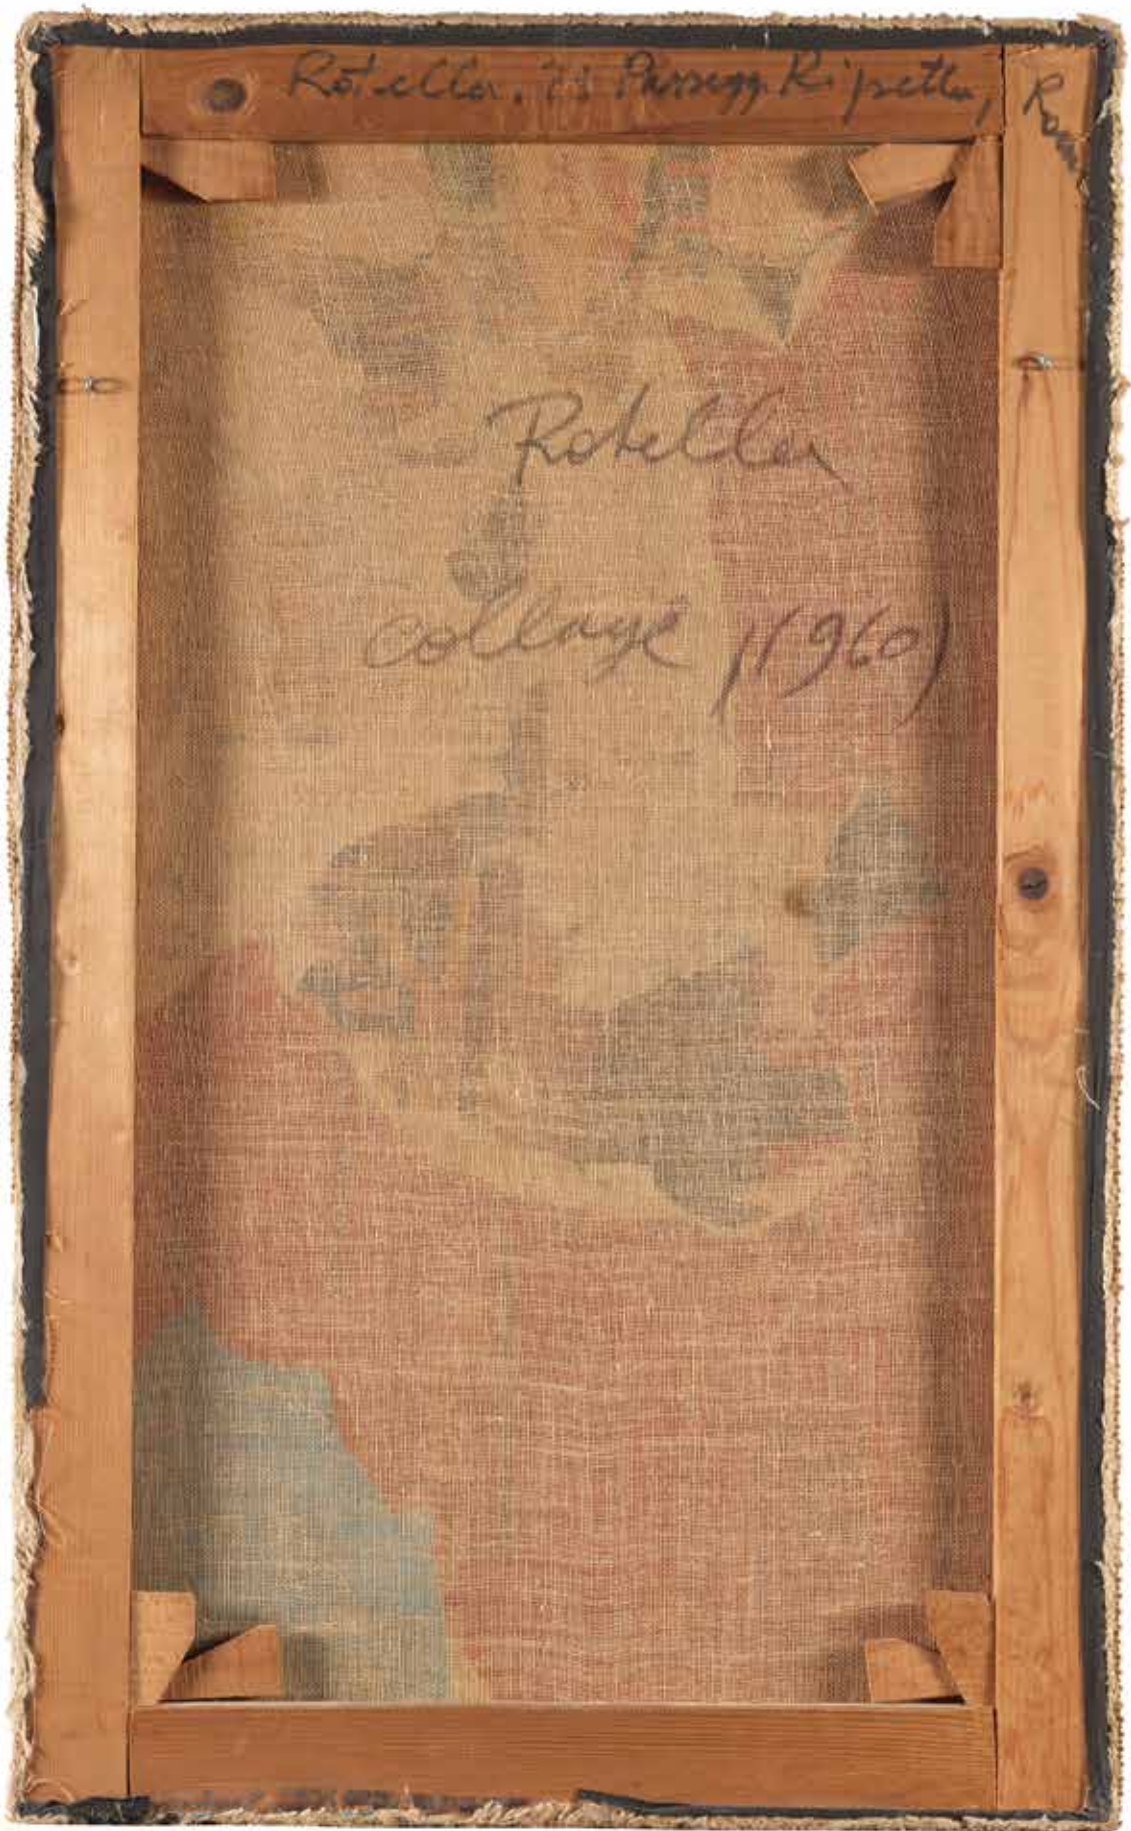 Rotella. Passegg. Ripetta, Roma
Rotella
collage (1960)